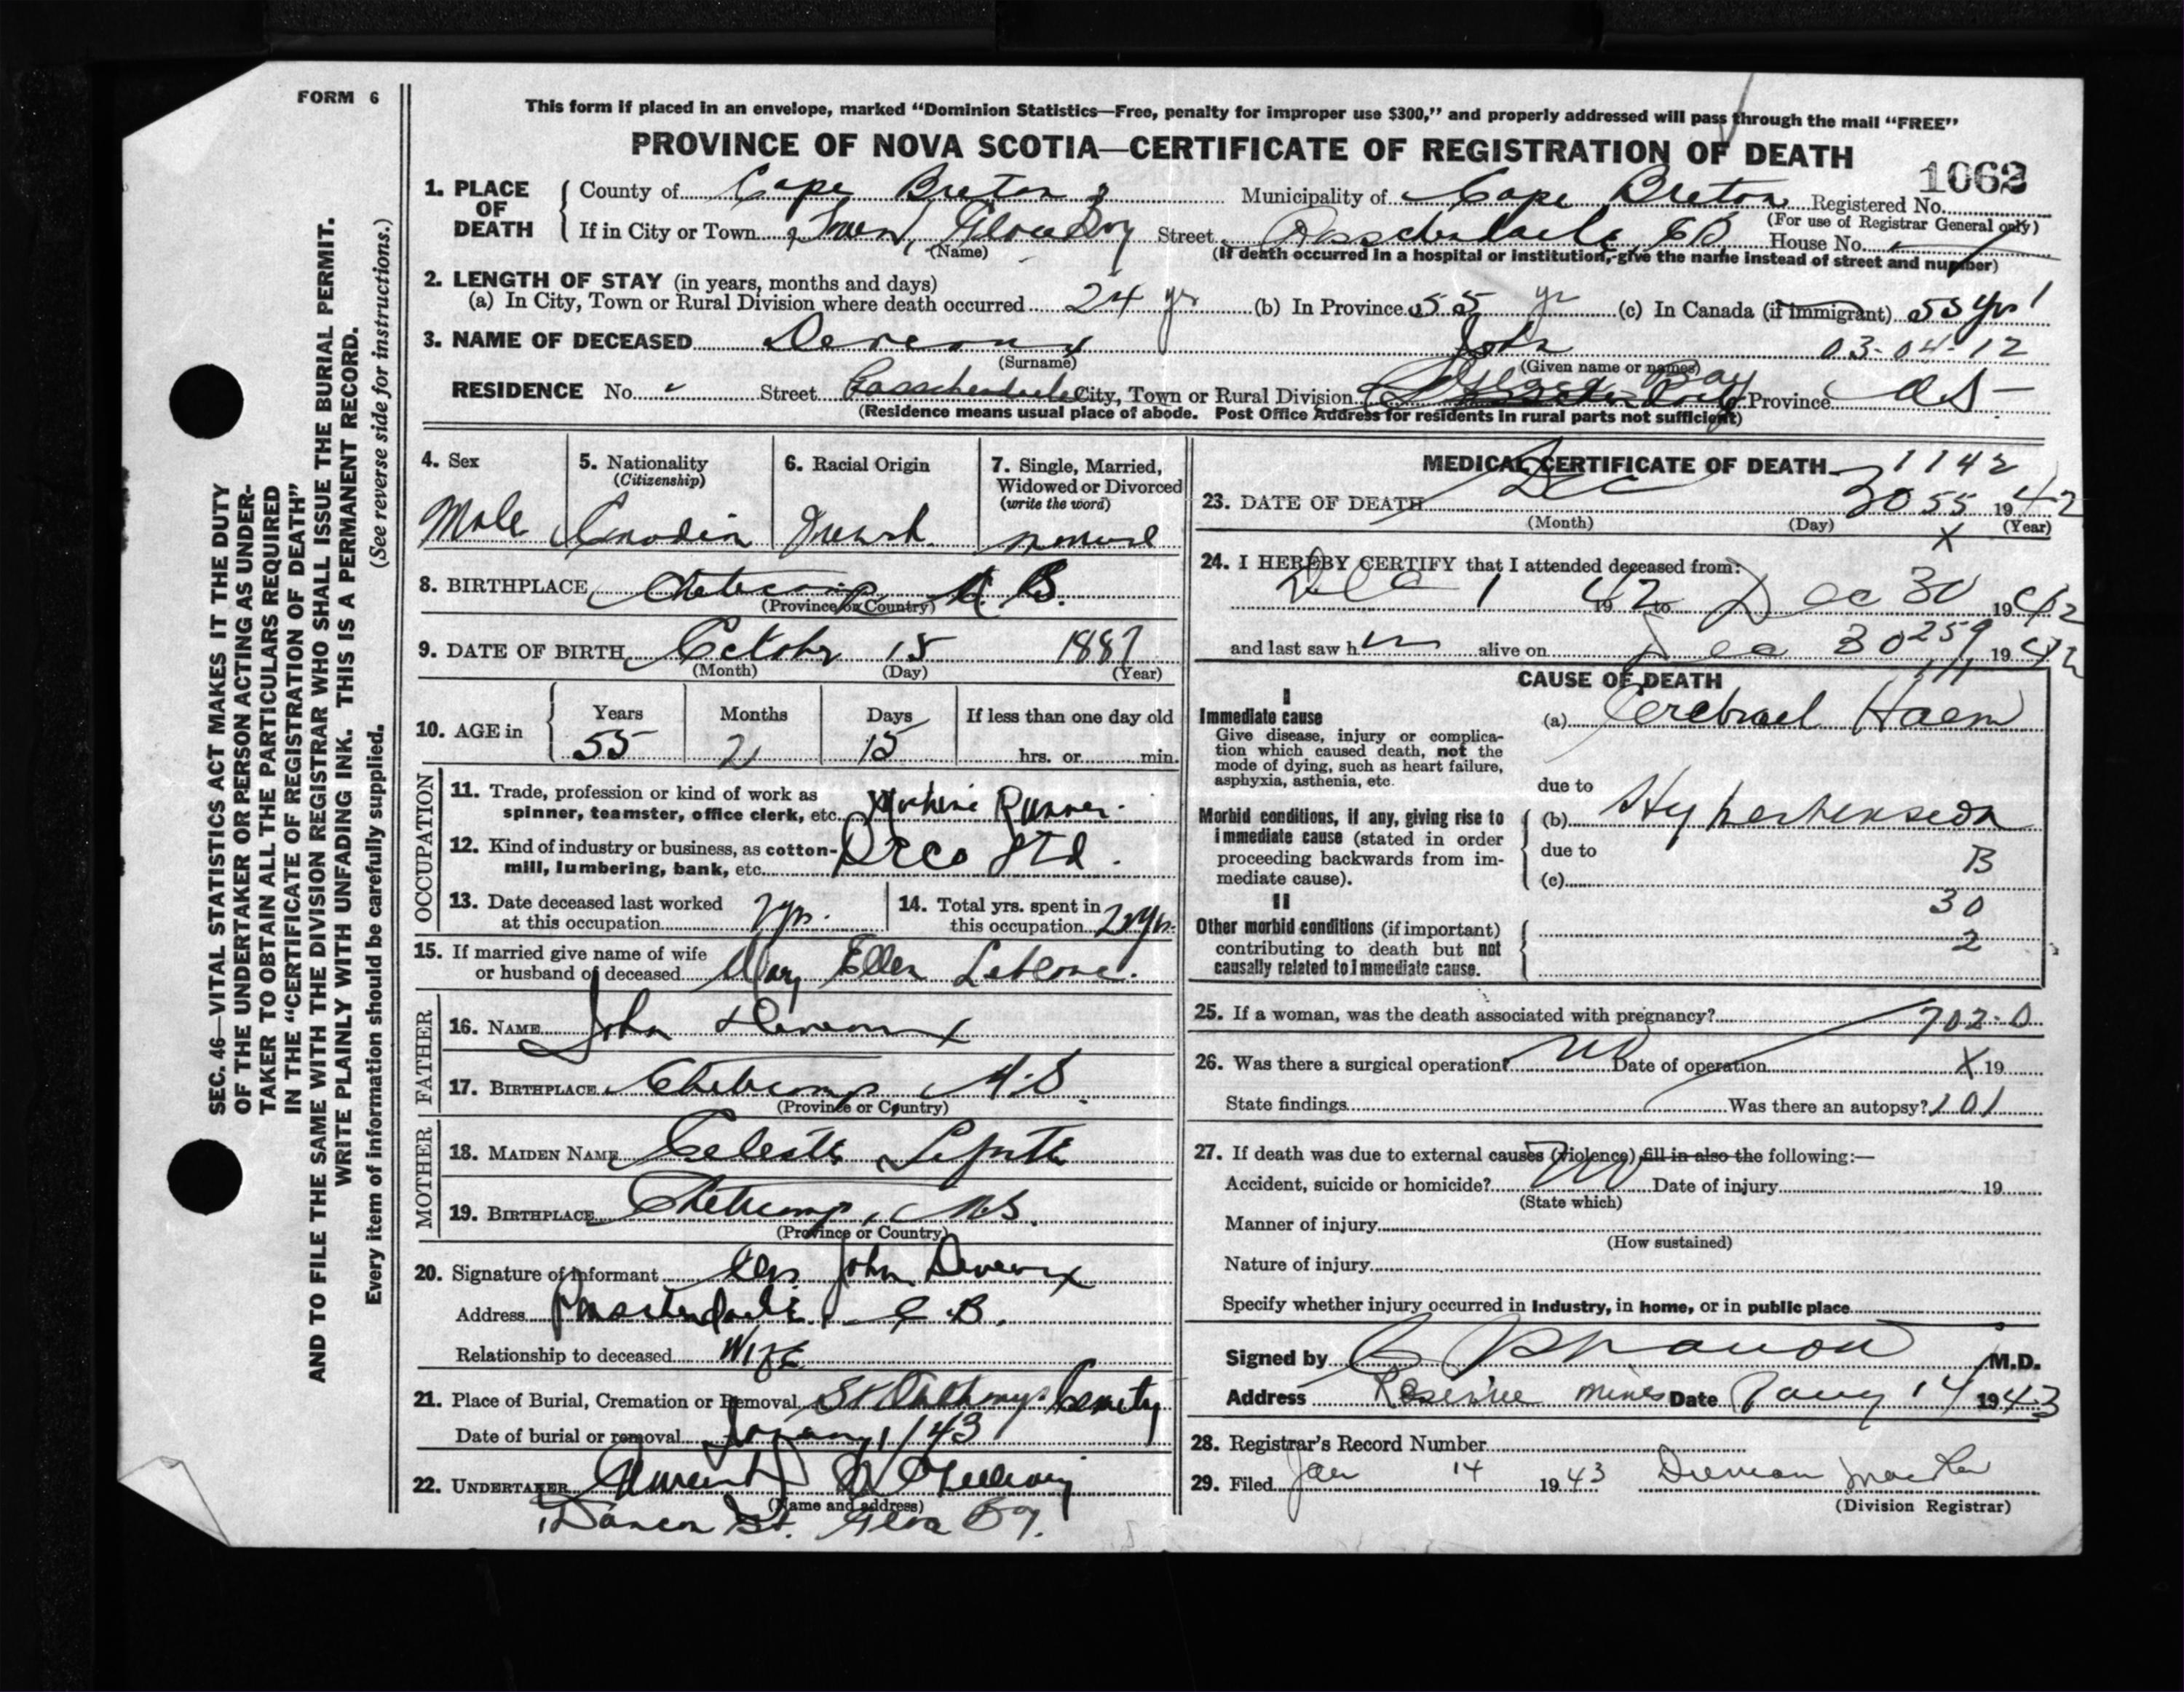 FORM 6
This form if placed in an envelope, marked “Dominion Statistics—Free, penalty for improper use $300,” and properly addressed will pass through the mail “FREE”
PROVINCE OF NOVA SCOTIA—CERTIFICATE OF REGISTRATION OF DEATH
1062
1. PLACE OF DEATH
County of Cape Breton Municipality of Cape Breton Registered No.
(For use of Registrar General only)
If in City or Town Town, Glace Bay Street Passchendaele, CB House No.
(Name) (If death occurred in a hospital or institution, give the name instead of street and number)
2. LENGTH OF STAY (in years, months and days)
(a) In City, Town or Rural Division where death occurred 24 yr (b) In Province 55 yr (c) In Canada (if immigrant) 55 yrs
3. NAME OF DECEASED Deveaux John 03-04-12
(Surname) (Given name or names)
RESIDENCE No. Street Passchendaele City, Town or Rural Division Glace Bay Province N.S.
(Residence means usual place of abode. Post Office Address for residents in rural parts not sufficient)
4. Sex 5. Nationality (Citizenship) 6. Racial Origin 7. Single, Married, Widowed or Divorced (write the word)
Male Canadin French married
8. BIRTHPLACE Chetecamp N.S.
(Province or Country)
9. DATE OF BIRTH October 15 1887
(Month) (Day) (Year)
10. AGE in Years Months Days If less than one day old
55 2 15 hrs. or min.
OCCUPATION
11. Trade, profession or kind of work as spinner, teamster, office clerk, etc. Machine Runner.
12. Kind of industry or business, as cotton-mill, lumbering, bank, etc. Ltd.
13. Date deceased last worked at this occupation yrs. 14. Total yrs. spent in this occupation yrs.
15. If married give name of wife or husband of deceased Mary Ellen Leblanc.
FATHER
16. NAME John Deveaux
17. BIRTHPLACE Chetecamp N.S.
(Province or Country)
MOTHER
18. MAIDEN NAME Celeste
19. BIRTHPLACE Chetecamp, N.S.
(Province or Country)
20. Signature of Informant Mrs. John Deveaux
Address Passchendaele C.B.
Relationship to deceased Wife
21. Place of Burial, Cremation or Removal St Anthonys
Date of burial or removal January 1/43
22. UNDERTAKER Vincent
(Name and address)
St. Glace Bay.
MEDICAL CERTIFICATE OF DEATH 1142
23. DATE OF DEATH Dec 30 55 1942
(Month) (Day) (Year)
X
24. I HEREBY CERTIFY that I attended deceased from:
Dec 1 1942 to Dec 30 1942
and last saw h im alive on Dec 30 259 1942
CAUSE OF DEATH
I
Immediate cause (a) Cerebrael Haem
Give disease, injury or complication which caused death, not the mode of dying, such as heart failure, asphyxia, asthenia, etc.
due to
Morbid conditions, if any, giving rise to immediate cause (stated in order proceeding backwards from immediate cause).
(b) Hypertension
due to B
(c)
II 30
Other morbid conditions (if important) contributing to death but not causally related to immediate cause.
2
25. If a woman, was the death associated with pregnancy? 702-0
26. Was there a surgical operation? no Date of operation X 19
State findings Was there an autopsy? 101
27. If death was due to external causes (violence) fill in also the following:—
Accident, suicide or homicide? no Date of injury 19
(State which)
Manner of injury
(How sustained)
Nature of injury
Specify whether injury occurred in Industry, in home, or in public place
Signed by M.D.
Address Reserve Mines Date Jany 14 1943
28. Registrar's Record Number
29. Filed Jan 14 1943
(Division Registrar)
SEC. 46—VITAL STATISTICS ACT MAKES IT THE DUTY
OF THE UNDERTAKER OR PERSON ACTING AS UNDER-
TAKER TO OBTAIN ALL THE PARTICULARS REQUIRED
IN THE “CERTIFICATE OF REGISTRATION OF DEATH”
AND TO FILE THE SAME WITH THE DIVISION REGISTRAR WHO SHALL ISSUE THE BURIAL PERMIT.
WRITE PLAINLY WITH UNFADING INK. THIS IS A PERMANENT RECORD.
Every item of information should be carefully supplied. (See reverse side for instructions.)